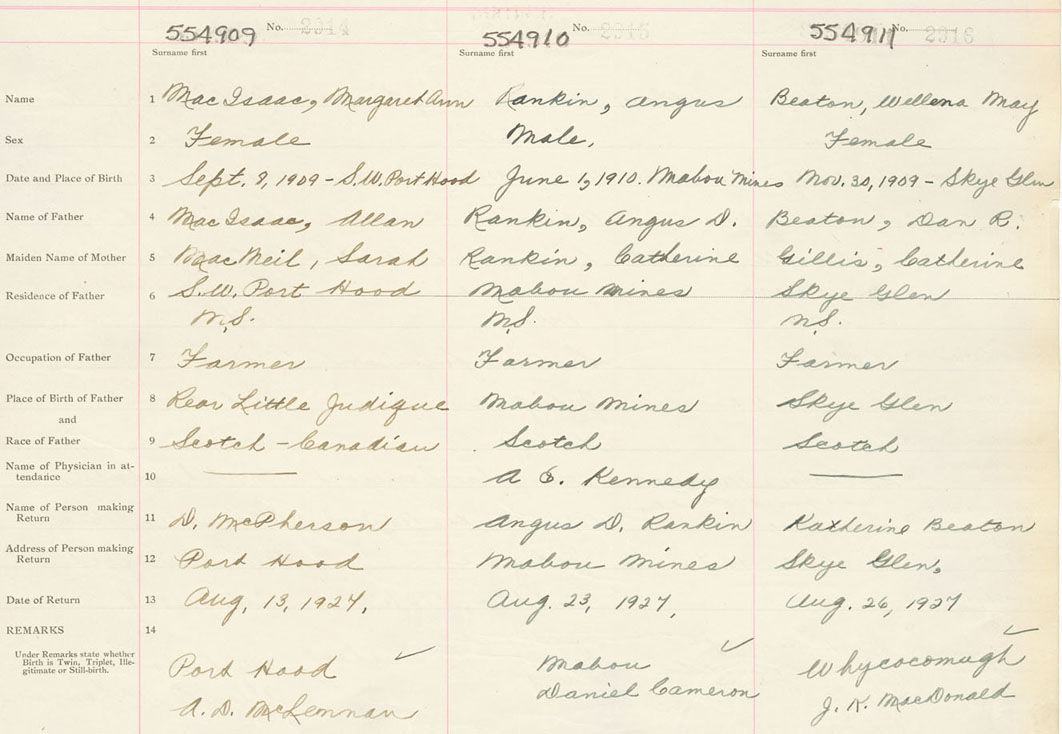 554909 No. 2914 554910 No. 2915 554911 No. 2916
Surname first Surname first Surname first
Name 1 MacIsaac, Margaret Ann Rankin, Angus Beaton, Wellena May
Sex 2 Female Male. Female
Date and Place of Birth 3 Sept. 8, 1909 - S.W. Port Hood June 1, 1910. Mabou Mines Nov. 30, 1909 - Skye Glen
Name of Father 4 MacIsaac, Allan Rankin, Angus D. Beaton, Dan R.
Maiden Name of Mother 5 MacNeil, Sarah Rankin, Catherine Gillis, Catherine
Residence of Father 6 S.W. Port Hood Mabou Mines Skye Glen
N.S. N.S. N.S.
Occupation of Father 7 Farmer Farmer Farmer
Place of Birth of Father 8 Rear Little Judique Mabou Mines Skye Glen
and
Race of Father 9 Scotch - Canadian Scotch Scotch
Name of Physician in at-
tendance 10 A Kennedy
Name of Person making
Return 11 D. McPherson Angus D. Rankin Katherine Beaton
Address of Person making
Return 12 Port Hood Mabou Mines Skye Glen.
Date of Return 13 Aug. 13, 1927. Aug. 23, 1927. Aug. 26, 1927
REMARKS 14
Under Remarks state whether
Birth is Twin, Triplet, Ille-
gitimate or Still-birth.
Port Hood Mabou Whycocomagh
A. D. McLennan Daniel Cameron J. K. MacDonald